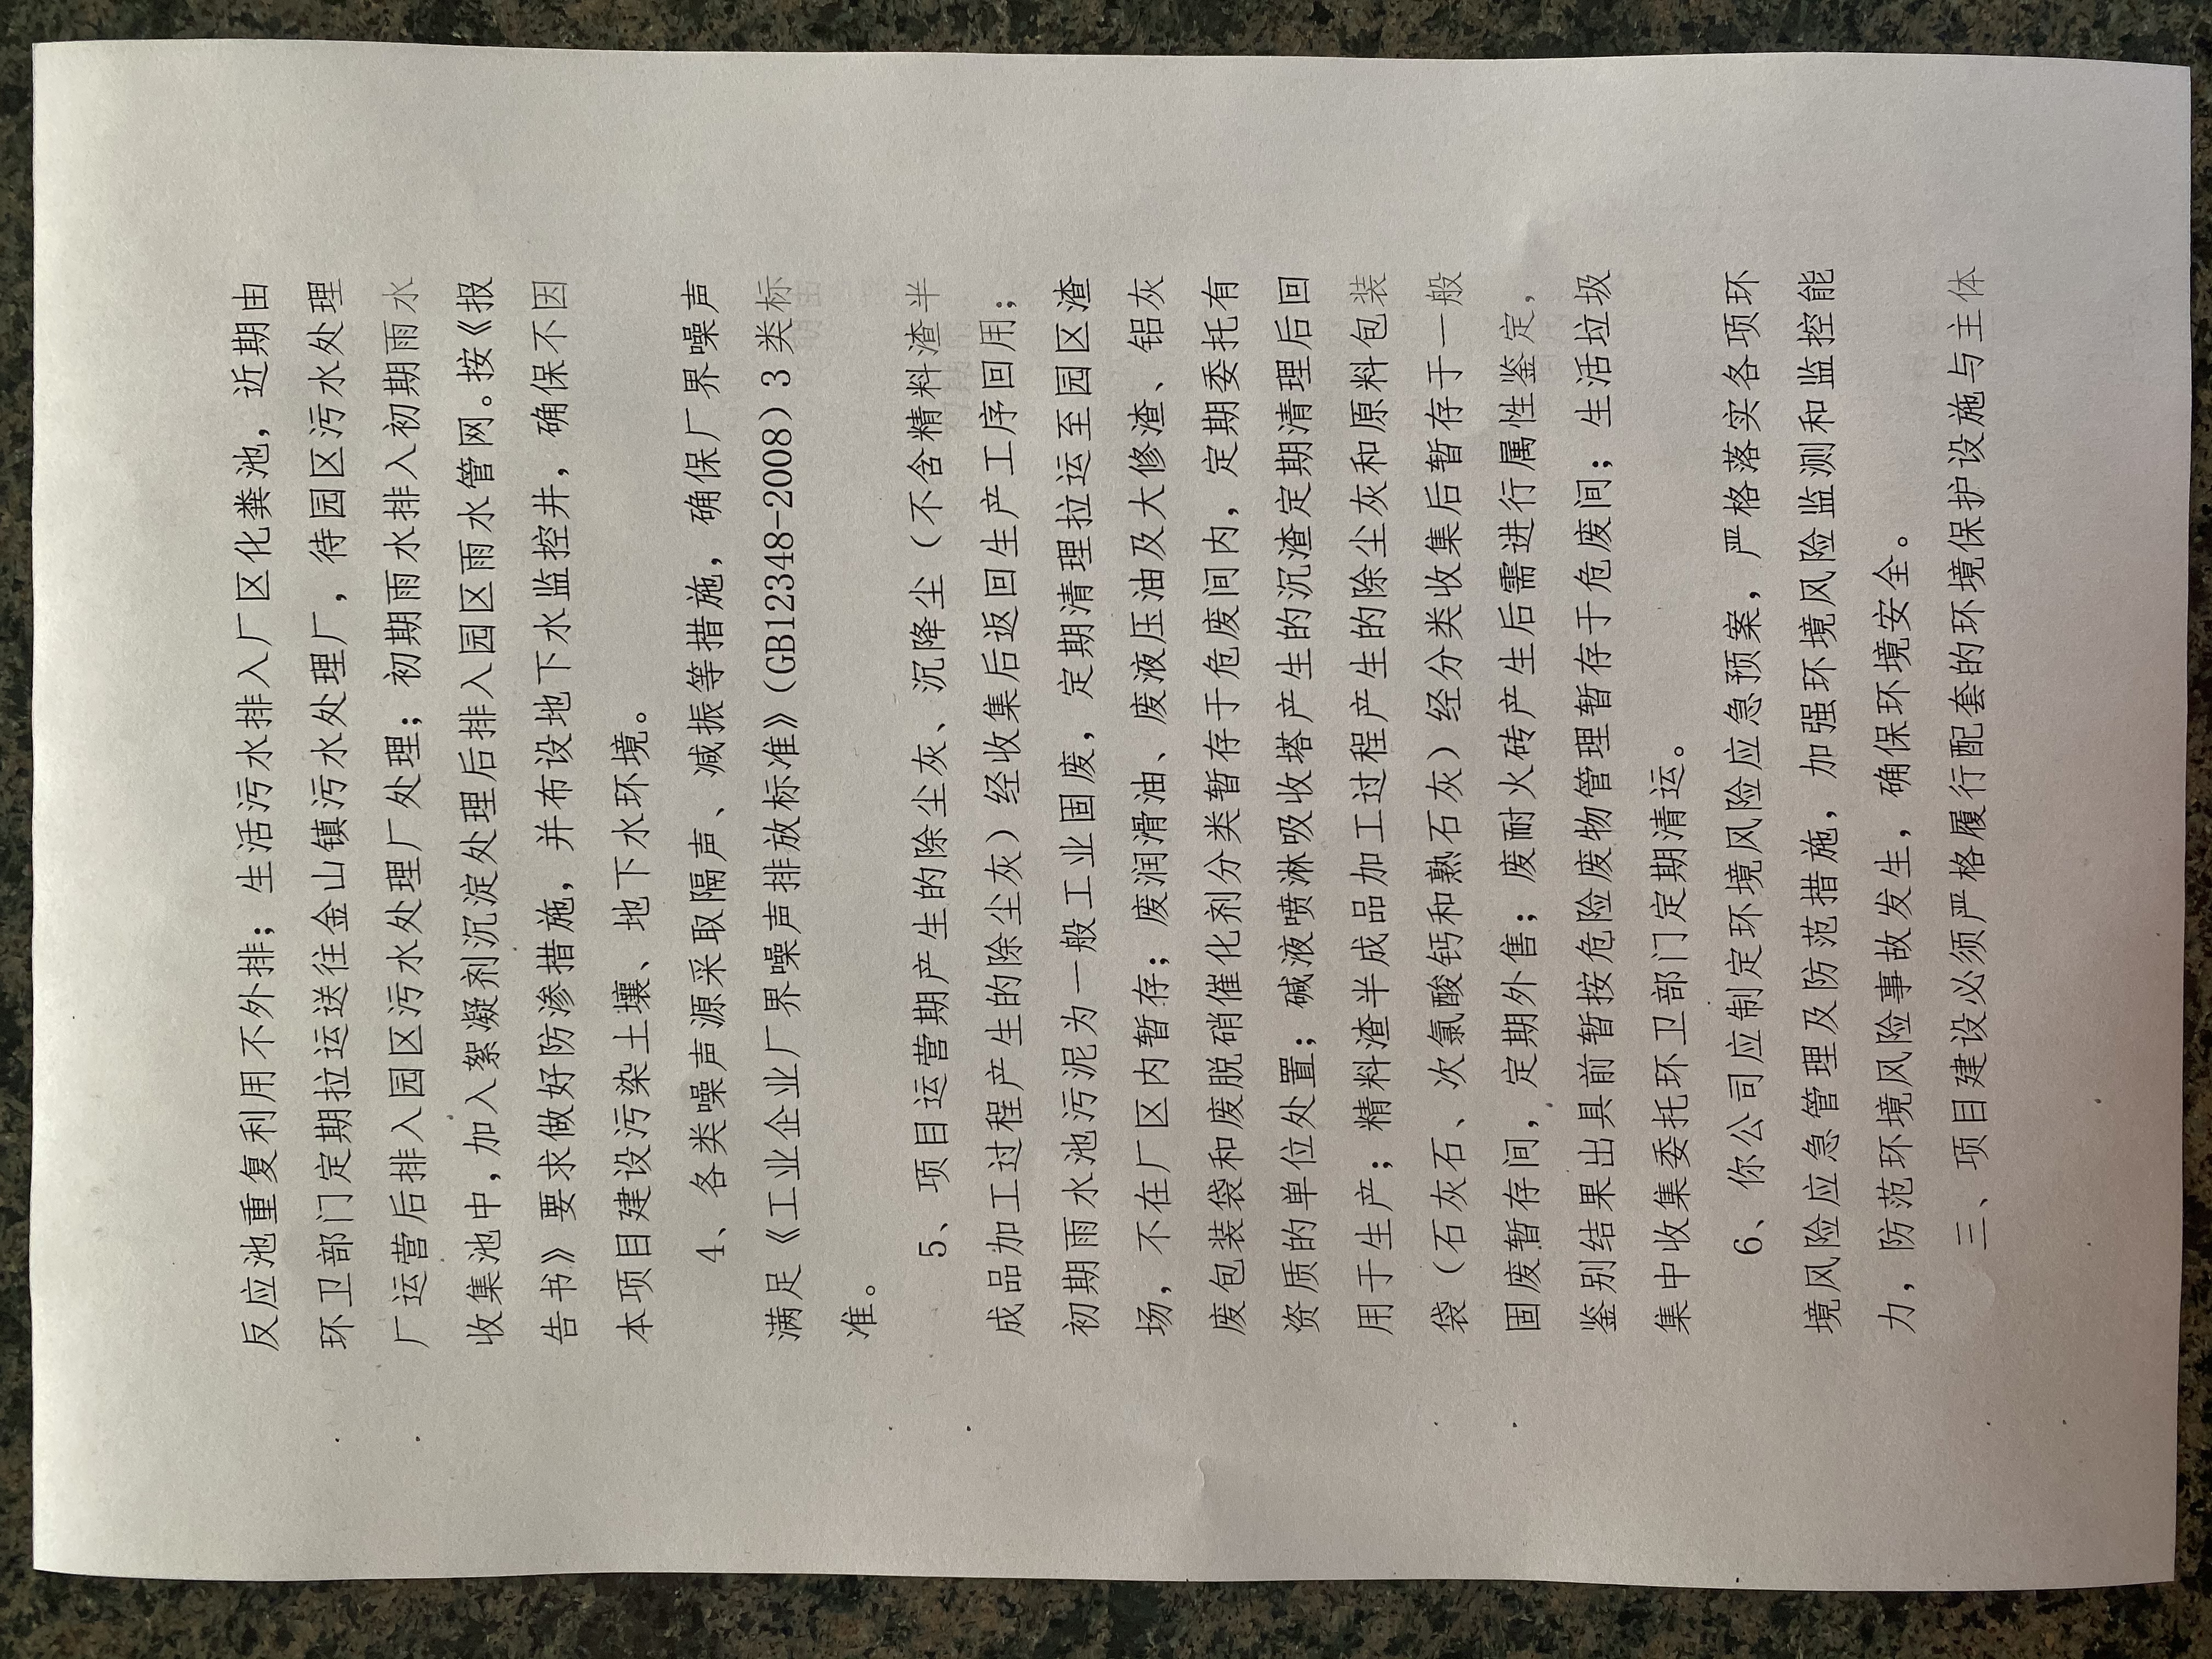 反应池重复利用不外排；生活污水排入厂区化粪池，近期由
环卫部门定期拉运送往金山镇污水处理厂，待园区污水处理
厂运营后排入园区污水处理厂处理；初期雨水排入初期雨水
收集池中，加入絮凝剂沉淀处理后排入园区雨水管网。按《报
告书》要求做好防渗措施，并布设地下水监控井，确保不因
本项目建设污染土壤、地下水环境。
4、各类噪声源采取隔声、减振等措施，确保厂界噪声
满足《工业企业厂界噪声排放标准》（GB12348-2008）3 类标
准。
5、项目运营期产生的除尘灰、沉降尘（不含精料渣半
成品加工过程产生的除尘灰）经收集后返回生产工序回用；
初期雨水池污泥为一般工业固废，定期清理拉运至园区渣
场，不在厂区内暂存；废润滑油、废液压油及大修渣、铝灰
废包装袋和废脱硝催化剂分类暂存于危废间内，定期委托有
资质的单位处置；碱液喷淋吸收塔产生的沉渣定期清理后回
用于生产；精料渣半成品加工过程产生的除尘灰和原料包装
袋（石灰石、次氯酸钙和熟石灰）经分类收集后暂存于一般
固废暂存间，定期外售；废耐火砖产生后需进行属性鉴定，
鉴别结果出具前暂按危险废物管理暂存于危废间；生活垃圾
集中收集委托环卫部门定期清运。
6、你公司应制定环境风险应急预案，严格落实各项环
境风险应急管理及防范措施，加强环境风险监测和监控能
力，防范环境风险事故发生，确保环境安全。
三、项目建设必须严格履行配套的环境保护设施与主体